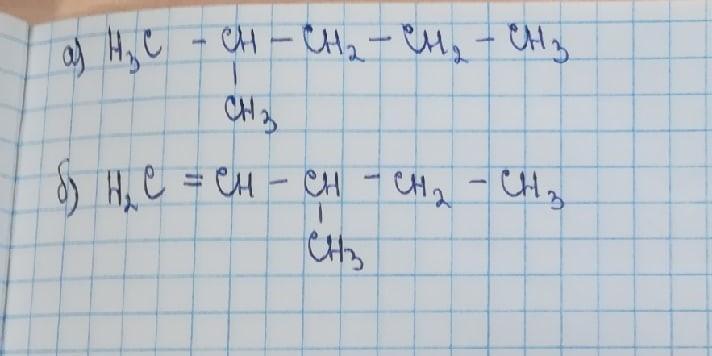 а) H₃C - CH - CH₂ - CH₂ - CH₃
|
CH₃
б) H₂C = CH - CH - CH₂ - CH₃
|
CH₃